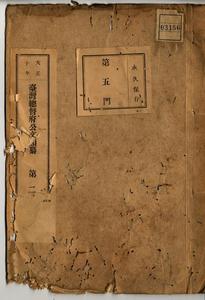 03156
永久保存
第五門
大正十年
臺灣總督府公文類纂 第二